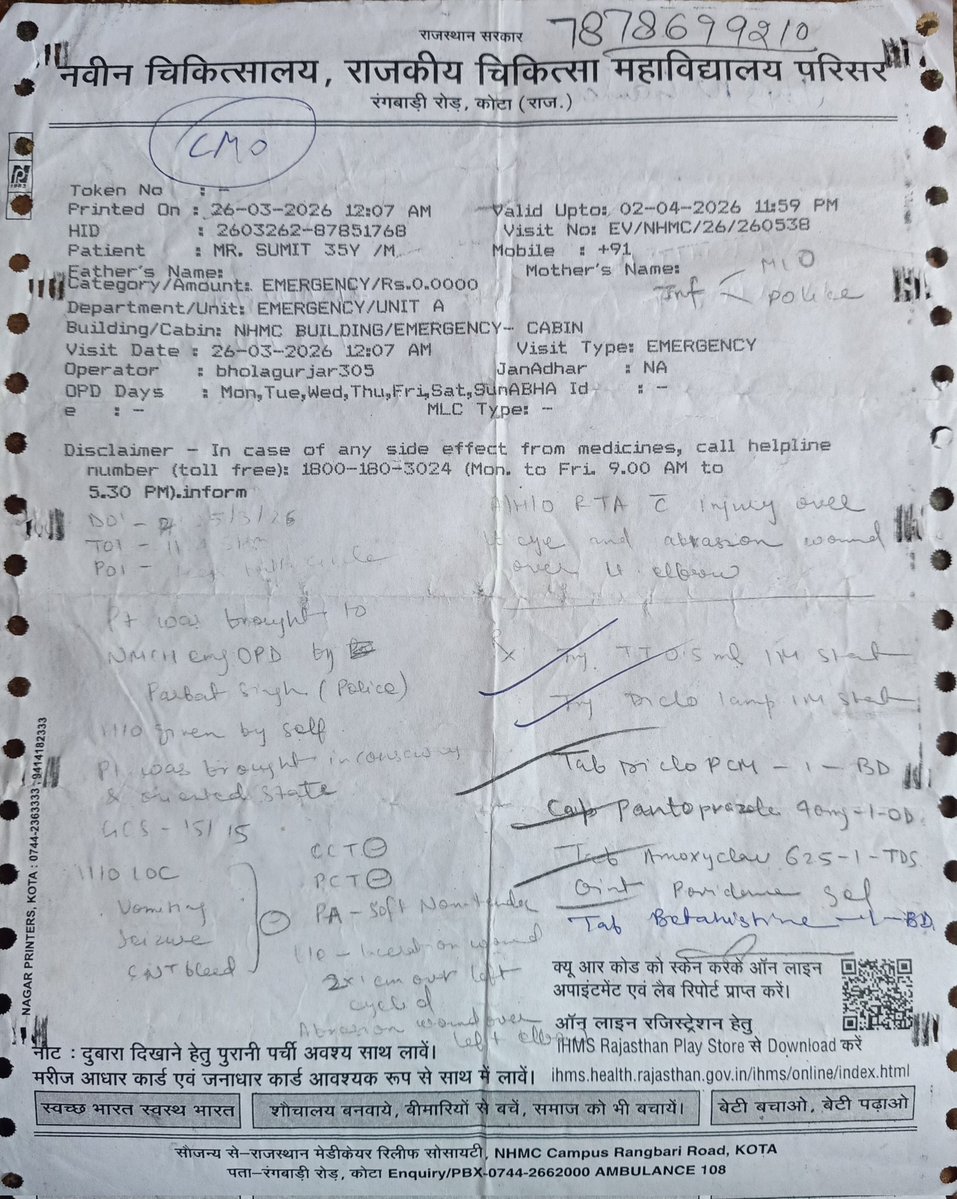 राजस्थान सरकार
7878699210
नवीन चिकित्सालय, राजकीय चिकित्सा महाविद्यालय परिसर
रंगबाड़ी रोड़, कोटा (राज.)
CMO
Token No : -
Printed On : 26-03-2026 12:07 AM Valid Upto: 02-04-2026 11:59 PM
HID : 2603262-87851768 Visit No: EV/NHMC/26/260538
Patient : MR. SUMIT 35Y /M Mobile : +91
Father's Name: Mother's Name:
Category/Amount: EMERGENCY/Rs.0.0000
Inf MIO police
Department/Unit: EMERGENCY/UNIT A
Building/Cabin: NHMC BUILDING/EMERGENCY- CABIN
Visit Date : 26-03-2026 12:07 AM Visit Type: EMERGENCY
Operator : bholagurjar305 JanAdhar : NA
OPD Days : Mon,Tue,Wed,Thu,Fri,Sat,SunABHA Id : -
e : - MLC Type: -
Disclaimer - In case of any side effect from medicines, call helpline
number (toll free): 1800-180-3024 (Mon. to Fri. 9.00 AM to
5.30 PM).inform
DOI - 5/3/26
TOI - 11
POI -
Pt was brought to
NMCH emg OPD by
Parbat Singh (Police)
H/O given by self
Pt was brought in conscious
& oriented state
GCS - 15/15
H/O LOC
Vomiting
Seizure
ENT bleed
CCT ⊖
PCT ⊖
PA - Soft Non tender
wound
2x1 cm over left
eyelid
Abrasion wound over
left elbow
A/H/O RTA c̄ injury over
Lt eye and abrasion wound
over Lt elbow
Rx
Inj. TT 0.5 ml IM stat
Inj Diclo 1amp IM stat
Tab Diclo PCM - 1 - BD
Cap Pantoprazole 40mg-1-OD
Tab Amoxyclav 625-1-TDS
Oint Povidone
Tab Betahistine -1- BD
क्यू आर कोड को स्कैन करकें ऑन लाइन
अपाइंटमेंट एवं लैब रिपोर्ट प्राप्त करें।
ऑन लाइन रजिस्ट्रेशन हेतु
IHMS Rajasthan Play Store से Download करें
नोट : दुबारा दिखाने हेतु पुरानी पर्ची अवश्य साथ लावें।
मरीज आधार कार्ड एवं जनाधार कार्ड आवश्यक रूप से साथ में लावें।
ihms.health.rajasthan.gov.in/ihms/online/index.html
स्वच्छ भारत स्वस्थ भारत
शौचालय बनवाये, बीमारियों से बचें, समाज को भी बचायें।
बेटी बचाओ, बेटी पढ़ाओ
सौजन्य से-राजस्थान मेडीकेयर रिलीफ सोसायटी, NHMC Campus Rangbari Road, KOTA
पता-रंगबाड़ी रोड़, कोटा Enquiry/PBX-0744-2662000 AMBULANCE 108
NAGAR PRINTERS, KOTA : 0744-2363333 ; 9414182333